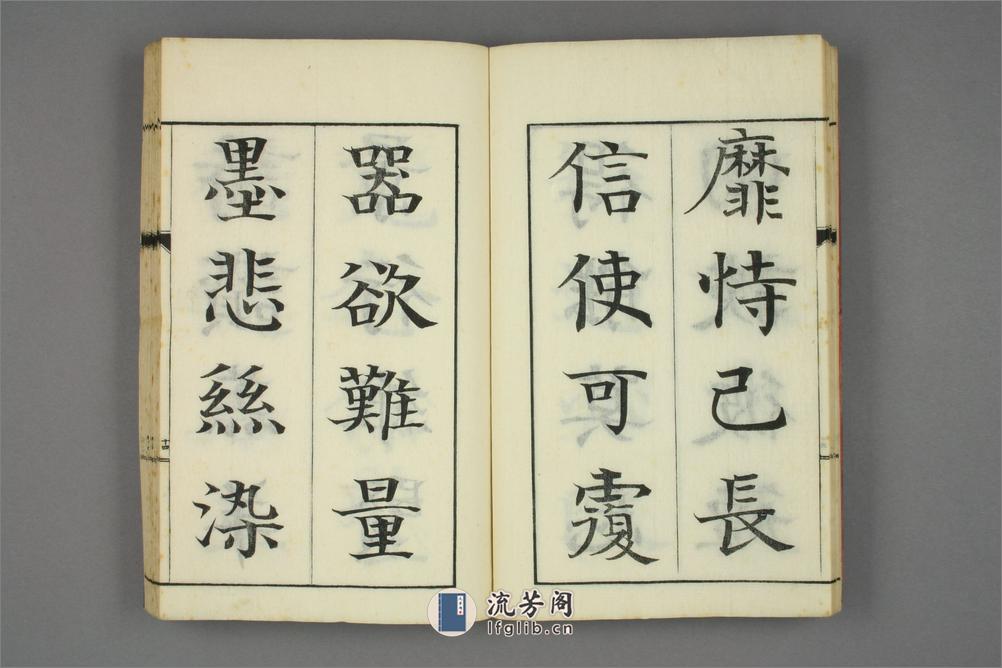 靡恃己長
信使可覆
器欲難量
墨悲絲染
流芳阁
lfglib.cn